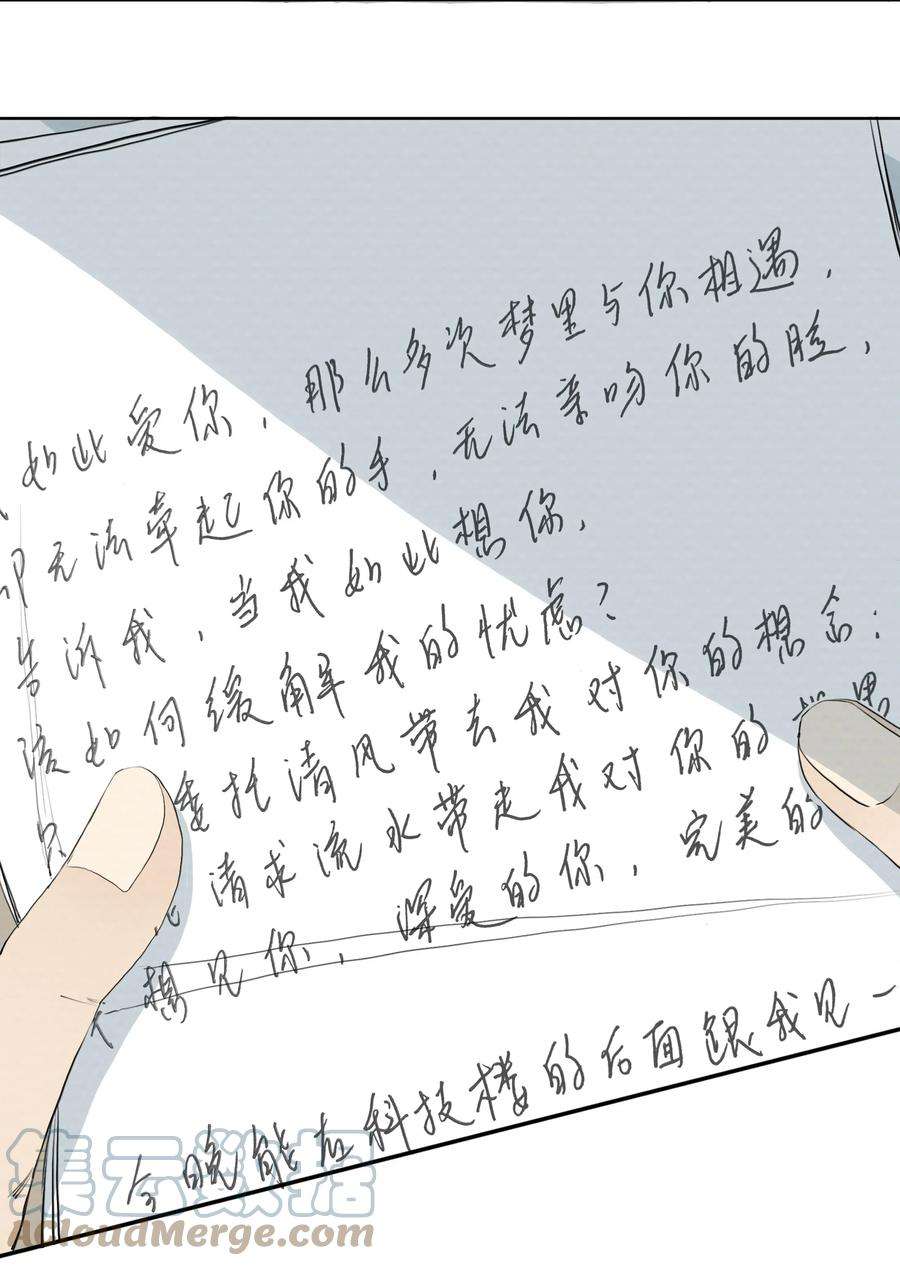 如此爱你，那么多次梦里与你相遇，
却无法牵起你的手，无法亲吻你的脸，
告诉我，当我如此想你，
该如何缓解我的忧虑？
委托清风带去我对你的想念：
请求流水带走我对你的
想见你，深爱的你，完美的
今晚能在科技楼的后面跟我见一
集云数据
AcloudMerge.com